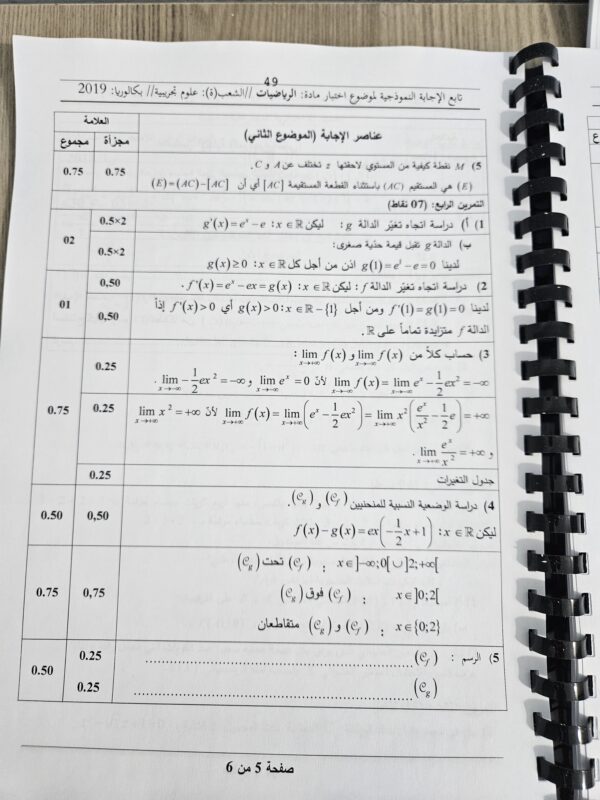 49
تابع الإجابة النموذجية لموضوع اختبار مادة: الرياضيات //الشعب(ة): علوم تجريبية// بكالوريا: 2019
العلامة
عناصر الإجابة (الموضوع الثاني)
مجزأة مجموع
5) M نقطة كيفية من المستوي لاحقتها z تختلف عن A و C.
(E) هي المستقيم (AC) باستثناء القطعة المستقيمة [AC] أي أن (E) = (AC) − [AC]
0.75 0.75
التمرين الرابع: (07 نقاط)
1) أ) دراسة اتجاه تغيّر الدالة g : ليكن x ∈ ℝ : g'(x) = e^x − e
0.5×2
ب) الدالة g تقبل قيمة حدية صغرى:
لدينا g(1) = e^1 − e = 0 اذن من أجل كل x ∈ ℝ : g(x) ≥ 0
0.5×2
02
2) دراسة اتجاه تغيّر الدالة f : ليكن x ∈ ℝ : f'(x) = e^x − ex = g(x) .
0,50
لدينا f'(1) = g(1) = 0 ومن أجل x ∈ ℝ − {1} : g(x) > 0 أي f'(x) > 0 إذاً
الدالة f متزايدة تماماً على ℝ.
0,50
01
3) حساب كلاً من lim f(x) x→−∞ و lim f(x) x→+∞ :
lim f(x) x→−∞ = lim e^x − 1/2 ex² x→−∞ = −∞ لأنّ lim e^x x→−∞ = 0 و lim − 1/2 ex² x→−∞ = −∞ .
0.25
lim f(x) x→+∞ = lim (e^x − 1/2 ex²) x→+∞ = lim x² (e^x/x² − 1/2 e) x→+∞ = +∞ لأنّ lim x² x→+∞ = +∞
و lim e^x/x² x→+∞ = +∞ .
0.25
0.75
جدول التغيرات
0.25
4) دراسة الوضعية النسبية للمنحنيين (C_f) و (C_g).
ليكن x ∈ ℝ : f(x) − g(x) = ex(−1/2 x + 1)
0,50 0.50
x ∈ ]−∞;0[ ∪ ]2;+∞[ : (C_f) تحت (C_g)
x ∈ ]0;2[ : (C_f) فوق (C_g)
x ∈ {0;2} : (C_f) و (C_g) متقاطعان
0,75 0.75
5) الرسم : (C_f) ......................................................
0.25
(C_g) ......................................................
0.25
0.50
صفحة 5 من 6